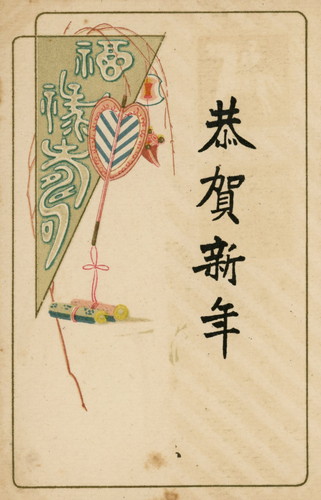 恭賀新年
福祿壽